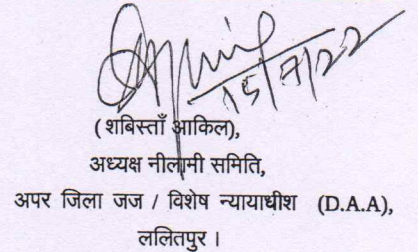 15/7/22
(शबिस्ताँ आकिल),
अध्यक्ष नीलामी समिति,
अपर जिला जज / विशेष न्यायाधीश (D.A.A),
ललितपुर ।